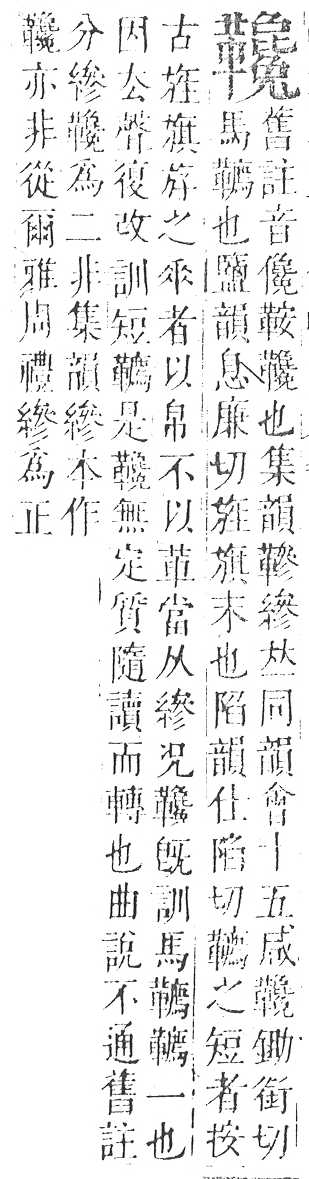 韉舊註音儳鞍韂也集韻鞶縿𠀤同韻會十五咸韂鋤銜切
馬韉也鹽韻息廉切旌旗末也陷韻仕陷切韉之短者按
古旌旗斿之垂者以帛不以革當从縿况韂旣訓馬韉韉一也
因厺聲復改訓短韉是韂無定質隨讀而轉也曲說不通舊註
分縿韂爲二非集韻縿本作
韂亦非從爾雅周禮縿爲正